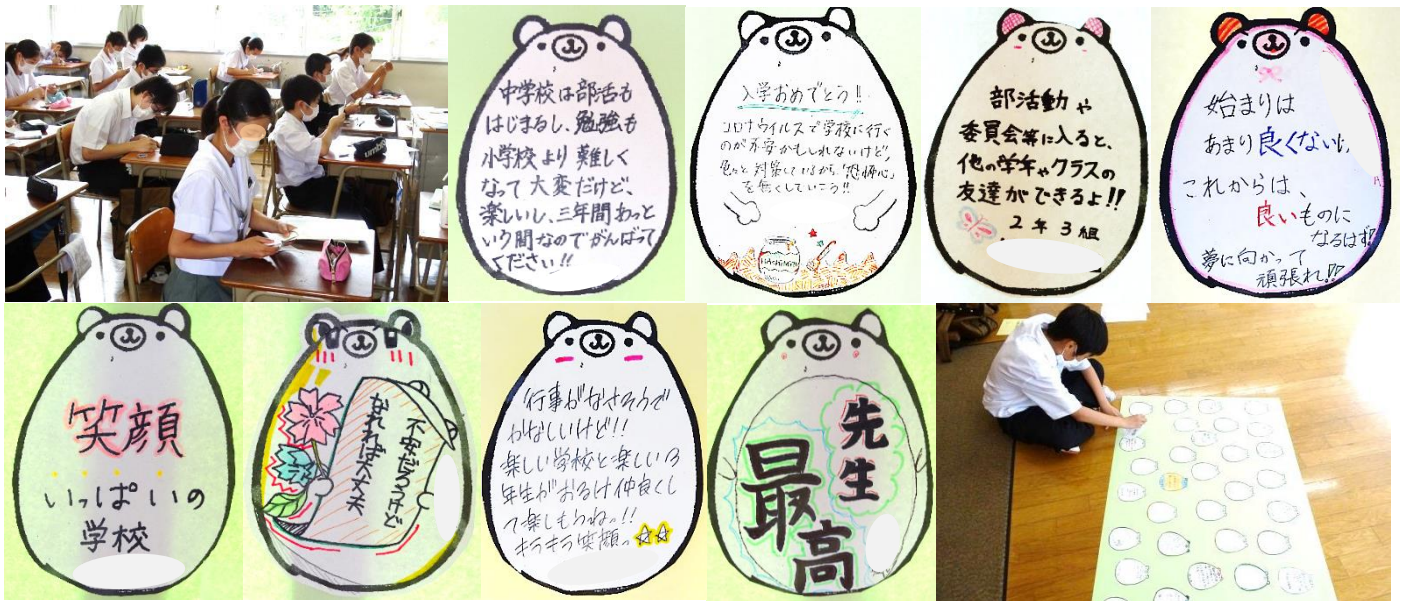 umbro
中学校は部活も
はじまるし、勉強も
小学校より難しく
なって大変だけど、
楽しいし、三年間あっと
いう間なのでがんばって
ください!!
入学おめでとう!!
コロナウイルスで学校に行く
のが不安かもしれないけど、
色々と対策しているから、「恐怖心」
を無くしていこう!!
部活動や
委員会等に入ると、
他の学年やクラスの
友達ができるよ!!
2年3組
始まりは
あまり良くないが、
これからは、
良いものに
なるはず!
夢に向かって
頑張れ!!
笑顔
いっぱいの
学校
不安だろうけど
なれれば大丈夫
行事がなさそうで
かなしいけど!!
楽しい学校と楽しい3
年生がおるけ仲良くし
て楽しもうねっ!!
キラキラ笑顔っ☆☆
先生
最高